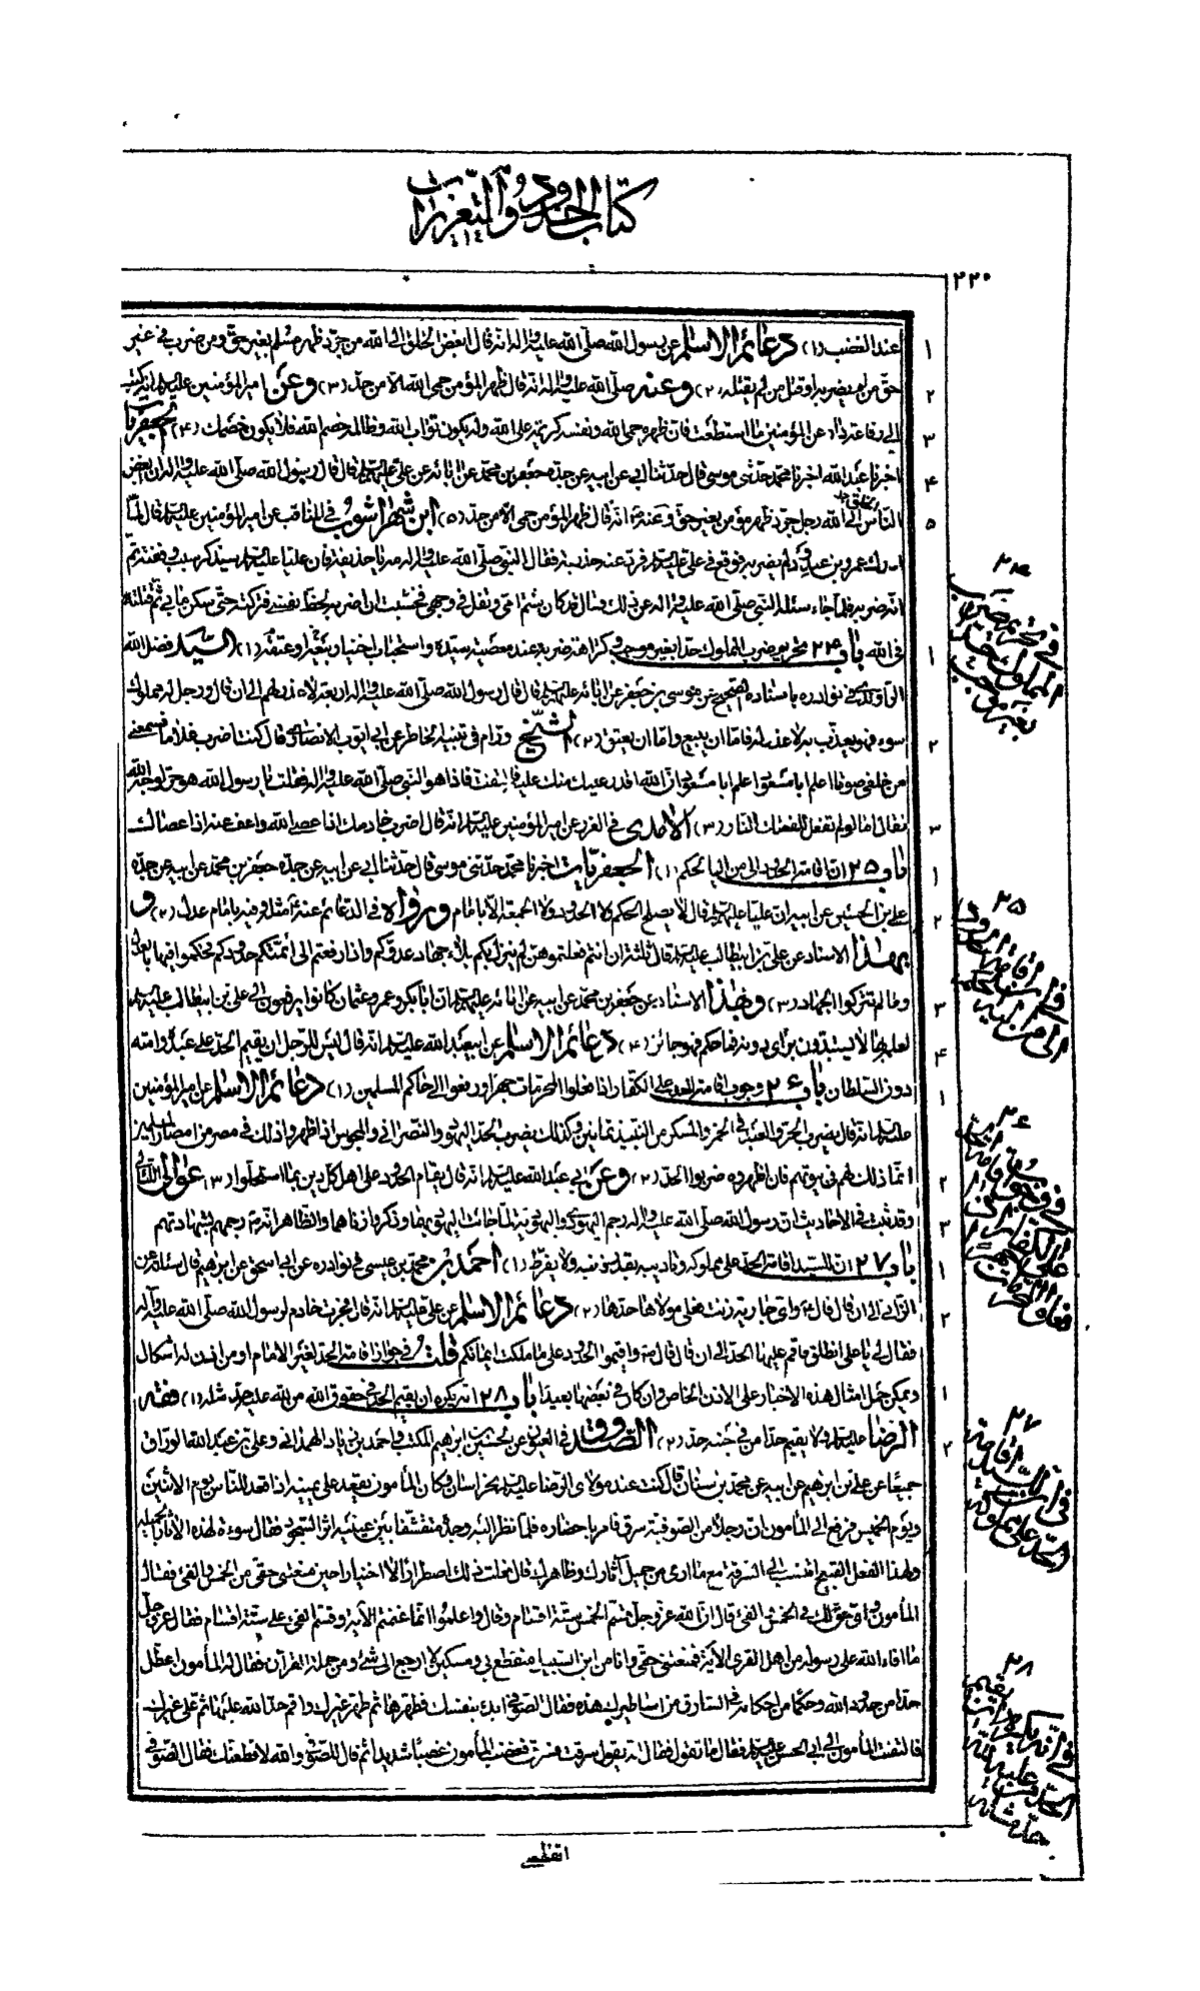 كتاب الحدود والتعزيرات
٢٢٠
عند الغضب (١) دعائم الاسلام عن رسول الله صلى الله عليه واله انه قال ابغض الخلق الى الله من جرد ظهر مسلم بغير حق ومن ضرب في غير
حق من لم يضربه او قتل من لم يقتله (٢) وعنه صلى الله عليه واله انه قال ظهر المؤمن حمى الله الا من حد (٣) وعن امير المؤمنين عليه السلام انه كتب
الى رفاعة دار عن المؤمنين ما استطعت فان ظهره حمى الله ونفسه كريمة على الله وله يكون ثواب الله وظالمه خصم الله فلا يكون خصمك (٤) الجعفريات
اخبرنا عبد الله اخبرنا محمد حدثني موسى قال حدثنا ابي عن ابيه عن جده جعفر بن محمد عن ابائه عن علي عليه السلام قال قال رسول الله صلى الله عليه واله ان ابغض
الناس الى الله رجل جرد ظهر مؤمن بغير حق وعنه انه قال ظهر المؤمن حمى الا من حد (٥) ابن شهراشوب في المناقب عن امير المؤمنين عليه السلام قال لما
ادرك عمرو بن عبد ود لم يضربه فوقع في علي عليه السلام فرد عنه حذيفة فقال النبي صلى الله عليه واله مه يا حذيفة فان عليا عليه السلام سيذكر سبب وقفته ثم
انه ضربه فلما جاء سئله النبي صلى الله عليه واله عن ذلك فقال قد كان شتم امي وتفل في وجهي فخشيت ان اضربه لحظ نفسي فتركته حتى سكن ما بي ثم قتلته
في الله باب ٢٤ تحريم ضرب المملوك حدا بغير موجب وكراهة ضربه عند معصية سيده واستحباب اختيار بيعه او عتقه (١) السيد فضل الله
الراوندي في نوادره باسناده الصحيح عن موسى بن جعفر عن ابائه عليهم السلام قال قال رسول الله صلى الله عليه واله اربعة لا عذر لهم الى ان قال ورجل له مملوك
سوء فهو يعذبه لا عذر له فاما ان يبيع واما ان يعتق (٢) الشيخ ورام في تنبيه الخاطر عن ابي ايوب الانصاري قال كنت اضرب غلاما فسمعني
من خلفي صوتا اعلم ابا مسعود اعلم ابا مسعود ان الله اقدر عليك منك عليه فالتفت فاذا هو النبي صلى الله عليه واله فقلت يا رسول الله هو حر لوجه الله
فقال اما لو لم تفعل للفحتك النار (٣) الامدي في الغرر عن امير المؤمنين عليه السلام انه قال اضرب خادمك اذا عصى الله واعف عنه اذا عصاك
باب ٢٥ ان اقامة الحدود الى من اليه الحكم (١) الجعفريات اخبرنا محمد حدثني موسى قال حدثنا ابي عن ابيه عن جده جعفر بن محمد عن ابيه عن جده
علي بن الحسين عن ابيه ان عليا عليه السلام قال لا يصلح الحكم ولا الحدود ولا الجمعة الا بامام ورواه في الدعائم عنه مثله وفيه بامام عدل (٢) و
بهذا الاسناد عن علي بن ابيطالب عليه السلام قال ثلثة ان انتم فعلتموهن لم ينزل بكم بلاء جهاد عدوكم واذا رفعتم الى ائمتكم حدودكم فحكموا فيها بالعدل
وما لم تتركوا الجهاد (٣) وبهذا الاسناد عن جعفر بن محمد عن ابيه عن ابائه عليهم السلام ان ابا بكر وعمر وعثمان كانوا يرفعون الى علي بن ابيطالب عليه السلام
لعلمه بها لا يستبدون براي دونه فما حكم فهو جائز (٤) دعائم الاسلام عن ابيعبد الله عليه السلام انه قال ليس للرجل ان يقيم الحد على عبده وامته
دون السلطان باب ٢٦ وجوب اقامة الحد على الكفار اذا فعلوا المحرمات جهرا ورفعوا الى حاكم المسلمين (١) دعائم الاسلام عن امير المؤمنين
عليه السلام انه قال يضرب الحر والعبد في الخمر والمسكر من النبيذ ثمانين وكذلك يضرب الحد اليهودي والنصراني والمجوسي اذا اظهروا ذلك في مصر من امصار المسلمين
انما ذلك لهم في بيوتهم فان اظهروه ضربوا الحد (٢) وعن ابي عبد الله عليه السلام انه قال يقام الحدود على اهل كل دين بما استحلوا (٣) عوالي اللئالي
وقد ثبت في الاحاديث ان رسول الله صلى الله عليه واله رجم اليهودي واليهودية لما جائت اليهود بهما وذكروا زناهما والظاهر انه رجمهم بشهادتهم
باب ٢٧ ان للسيد اقامة الحد على مملوكه وتاديبه بقدر ذنبه ولا يفرط (١) احمد بن محمد بن عيسى في نوادره عن ابي اسحق عن ابراهيم قال سئلته عن
الزاني الى ان قال قال واي جارية زنت فعلى مولاها حدها (٢) دعائم الاسلام عن علي عليه السلام انه قال فجرت خادم لرسول الله صلى الله عليه واله
فقال لي يا علي انطلق فاقم عليها الحد الى ان قال قال واقيموا الحدود على ما ملكت ايمانكم قلت في جواز اقامة الحد لغير الامام او من اذن له اشكال
ويمكن حمل امثال هذه الاخبار على الاذن الخاص وان كان في بعضها بعيدا باب ٢٨ انه يكره ان يقيم الحد في حقوق الله من لله عليه حد مثله (١) فقه
الرضا عليه السلام لا يقيم حدا من في جنبه حد (٢) الصدوق في العيون عن الحسين بن ابراهيم المكتب واحمد بن زياد الهمداني وعلي بن عبد الله الوراق
جميعا عن علي بن ابراهيم عن ابيه عن محمد بن سنان قال كنت عند مولاي الرضا عليه السلام بخراسان وكان المأمون يقعده على يمينه اذا قعد للناس يوم الاثنين
ويوم الخميس فرفع الى المأمون ان رجلا من الصوفية سرق فامر باحضاره فلما نظر اليه وجده متقشفا بين عينيه اثر السجود فقال سوءة لهذه الاثار الجميلة
ولهذا الفعل القبيح اتنسب الى السرقة مع ما ارى من جميل آثارك وظاهرك قال فعلت ذلك اضطرارا لا اختيارا حين منعتني حقي من الخمس والفئ فقال
المأمون واي حق لك في الخمس والفئ قال ان الله عز وجل قسم الخمس ستة اقسام وقال واعلموا انما غنمتم الاية وقسم الفئ على ستة اقسام فقال عز وجل
ما افاء الله على رسوله من اهل القرى الاية فمنعتني حقي وانا من ابن السبيل منقطع بي ومسكين لا ارجع الى شئ ومن حملة القرآن فقال له المأمون اعطل
حدا من حدود الله وحكما من احكامه في السارق من اساطيرك هذه فقال الصوفي ابدء بنفسك فطهرها ثم طهر غيرك واقم حد الله عليها ثم على غيرك
فالتفت المأمون الى ابي الحسن عليه السلام فقال ما تقول فقال انه يقول سرقت فسرق فغضب المأمون غضبا شديدا ثم قال للصوفي والله لاقطعنك فقال الصوفي
٢٤
في تحريم ضرب
المملوك حدا
بغير موجب
٢٥
في ان اقامة الحدود
الى من اليه الحكم
٢٦
في وجوب اقامة
الحد على الكفار اذا
فعلوا المحرمات جهرا
٢٧
في ان للسيد اقامة
الحد على مملوكه
٢٨
في انه يكره ان يقيم
الحد من لله عليه
حد مثله
اتقطعني